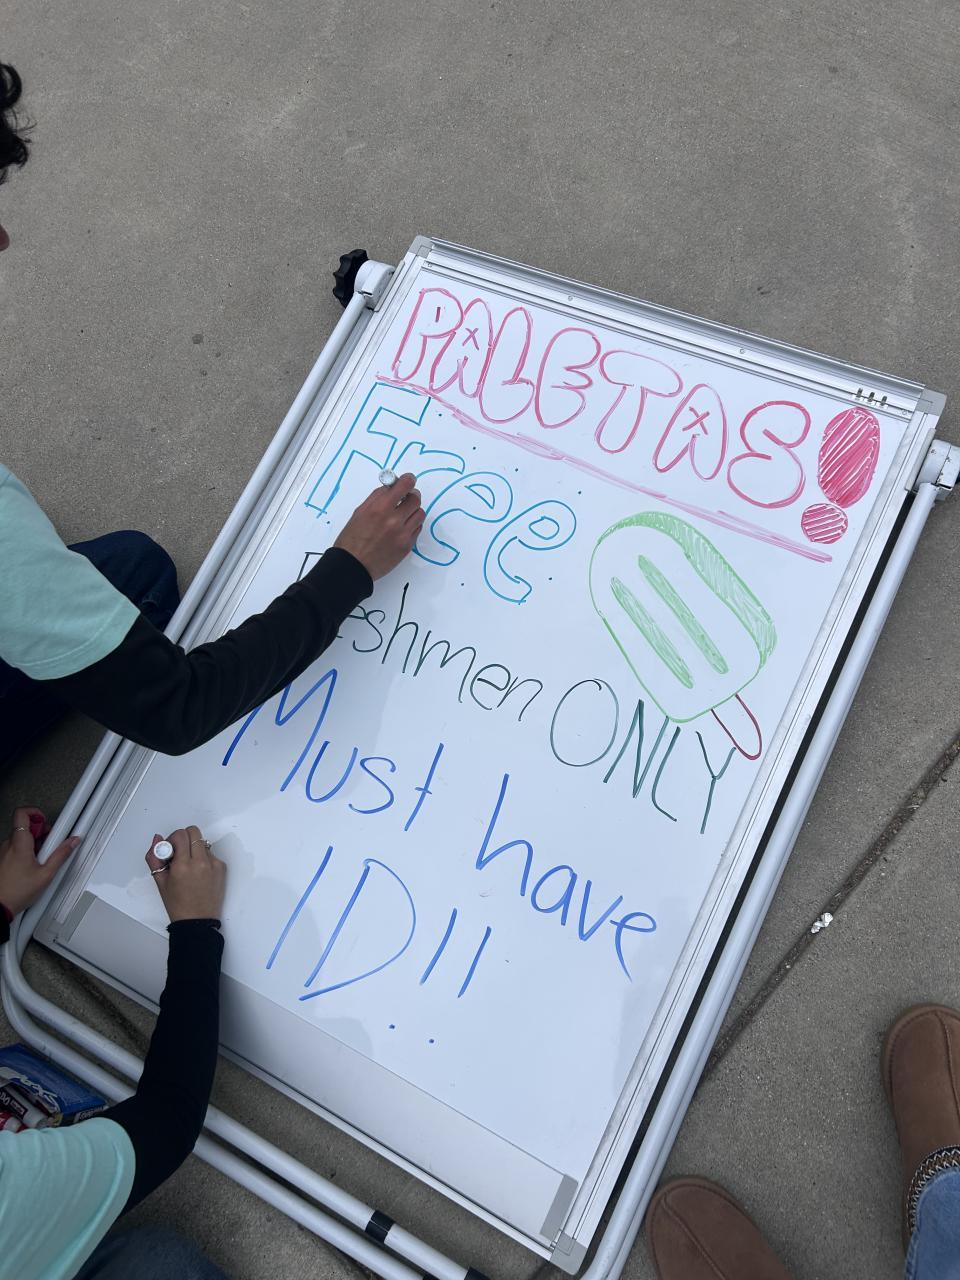 PALETAS!
Free
Freshmen ONLY
Must have
ID!!